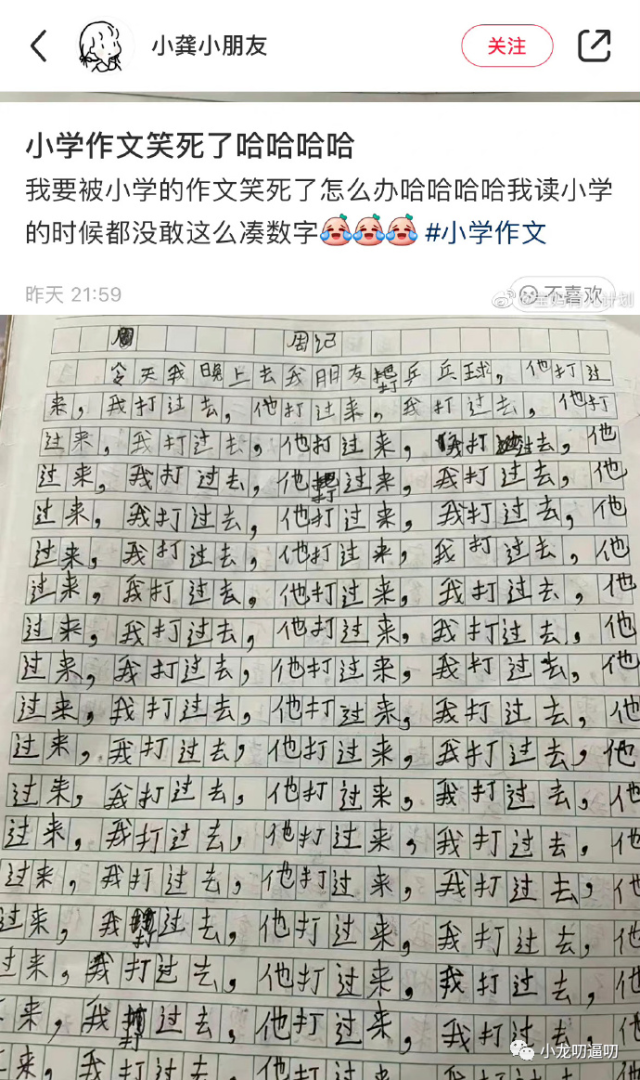 小龚小朋友
关注
小学作文笑死了哈哈哈哈
我要被小学的作文笑死了怎么办哈哈哈哈我读小学
的时候都没敢这么凑数字 #小学作文
昨天 21:59
不喜欢
周记
今天我晚上去我朋友打乒乓球，他打过
来，我打过去，他打过来，我打过去，他打
过来，我打过去，他打过来，我打过去，他
过来，我打过去，他打过来，我打过去，他
过来，我打过去，他打过来，我打过去，他
过来，我打过去，他打过来，我打过去，他
过来，我打过去，他打过来，我打过去，他
过来，我打过去，他打过来，我打过去，他
过来，我打过去，他打过来，我打过去，他
过来，我打过去，他打过来，我打过去，他
过来，我打过去，他打过来，我打过去，他
过来，我打过去，他打过来，我打过去，他
过来，我打过去，他打过来，我打过去，他
过来，我打过去，他打过来，我打过去，他
过来，我打过去，他打过来，我打过去，他
过来，我打过去，他打过来，我打过去，他
来，我打过去，他打过来，我打过去，
来，我打过去，他打过来，我打过去，
小龙叨逼叨